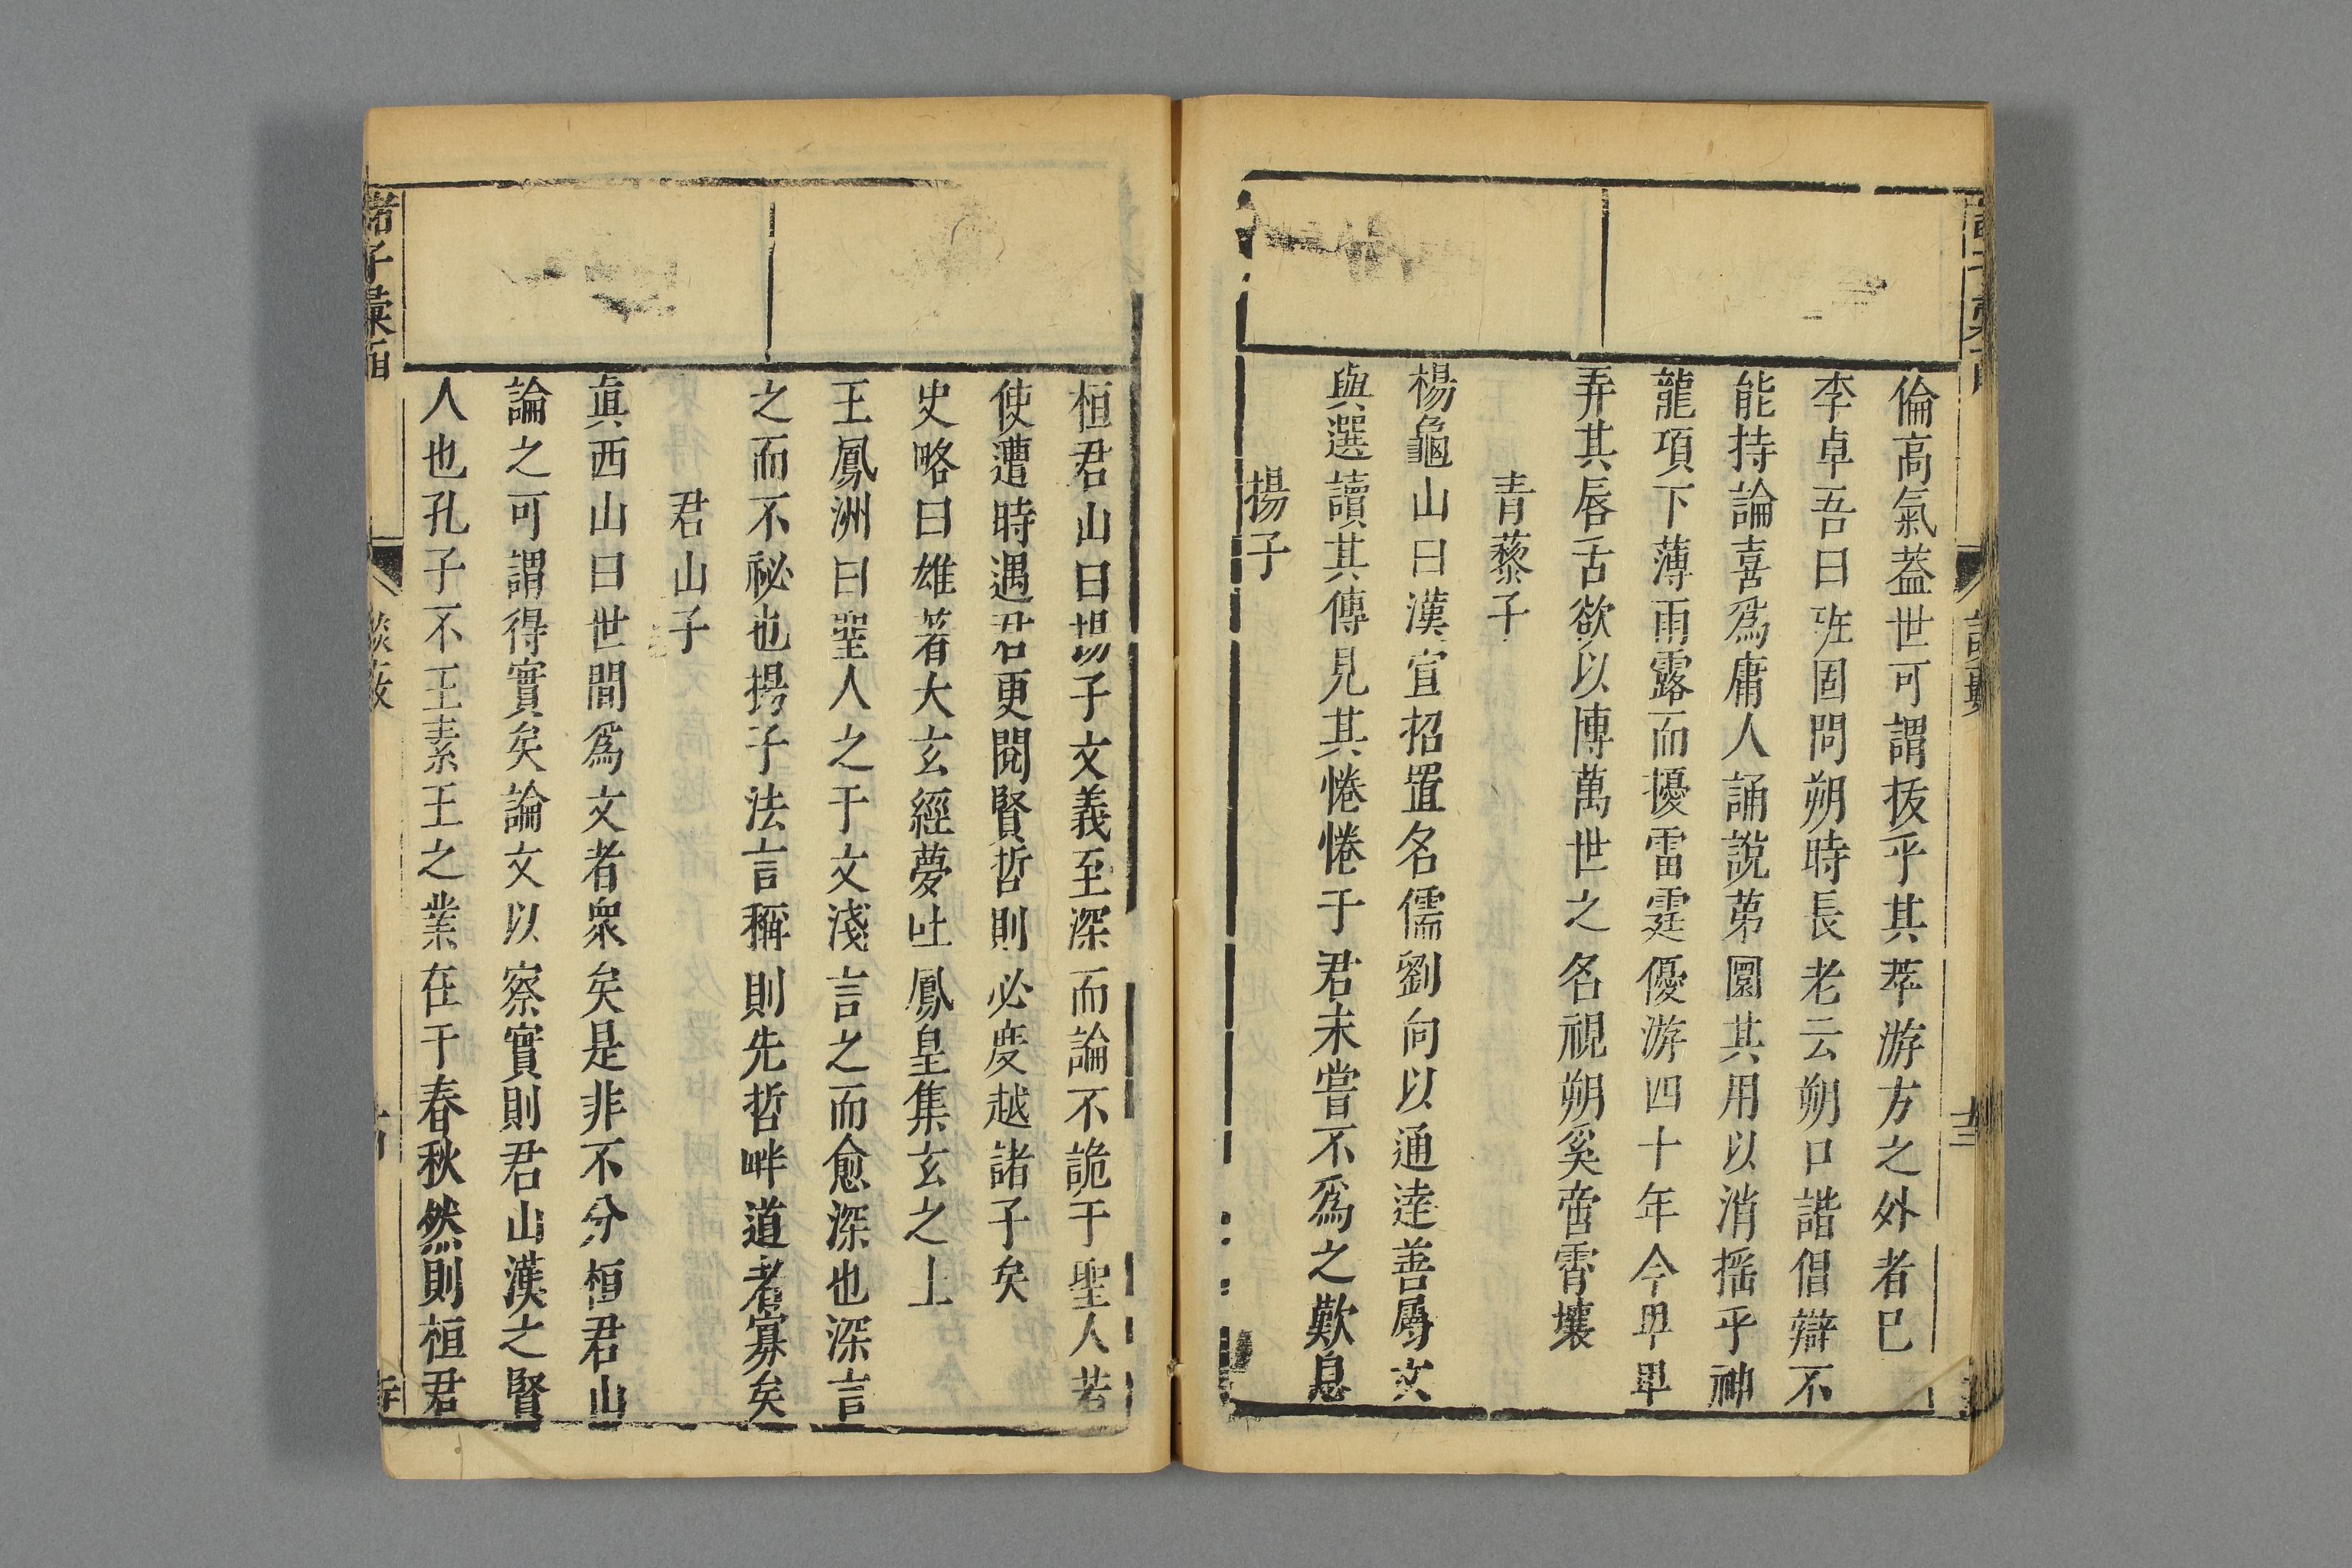 倫高氣葢世可謂抜乎其萃游方之外者已
李卓吾曰班固問朔時長老云朔口諧倡辯不
能持論喜爲庸人誦說苐圜其用以消摇乎神
龍項下薄雨露而擾雷霆優游四十年今畢畢
弄其唇舌欲以博萬世之名視朔奚啻霄壤
青藜子
楊龜山曰漢宣招置名儒劉向以通逹善屬文
與選讀其傳見其惓惓于君未嘗不爲之歎息
揚子
桓君山曰揚子文義至深而論不詭于聖人若
使遭時遇君更閱賢哲則必度越諸子矣
史略曰雄著大玄經夢吐鳳皇集玄之上
王鳳洲曰聖人之于文淺言之而愈深也深言
之而不秘也揚子法言稱則先哲畔道者寡矣
君山子
眞西山曰世間爲文者衆矣是非不分桓君山
論之可謂得實矣論文以察實則君山漢之賢
人也孔子不王素王之業在于春秋然則桓君
諸子彙函
談薮